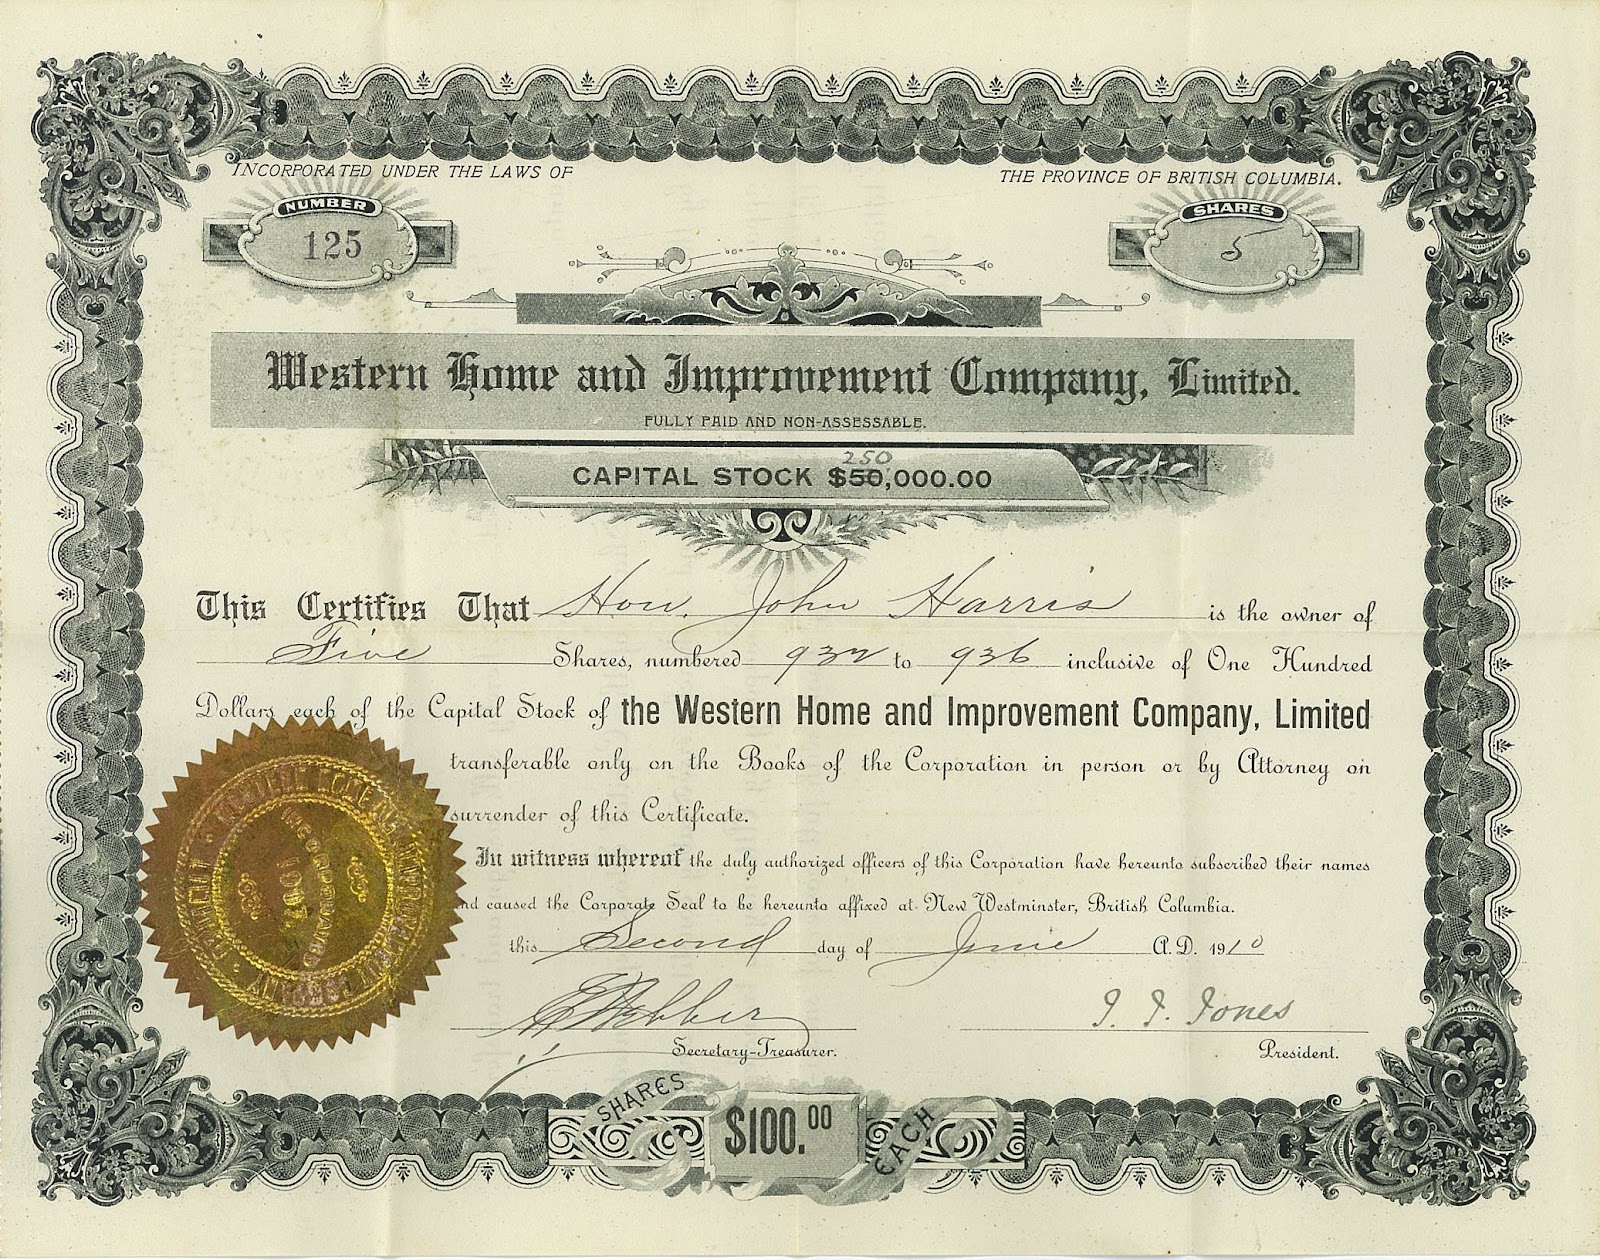 INCORPORATED UNDER THE LAWS OF THE PROVINCE OF BRITISH COLUMBIA.
NUMBER
125
SHARES
5
Western Home and Improvement Company, Limited.
FULLY PAID AND NON-ASSESSABLE.
250
CAPITAL STOCK $50,000.00
This Certifies That Hon. John Harris is the owner of
Five Shares, numbered 932 to 936 inclusive of One Hundred
Dollars each of the Capital Stock of the Western Home and Improvement Company, Limited
transferable only on the Books of the Corporation in person or by Attorney on
surrender of this Certificate.
In witness whereof the duly authorized officers of this Corporation have hereunto subscribed their names
and caused the Corporate Seal to be hereunto affixed at New Westminster, British Columbia.
this Second day of June A.D. 1910
Webber
J. J. Jones
Secretary-Treasurer.
President.
SHARES $100.00 EACH
WESTERN HOME AND IMPROVEMENT COMPANY LIMITED
INCORPORATED
1907